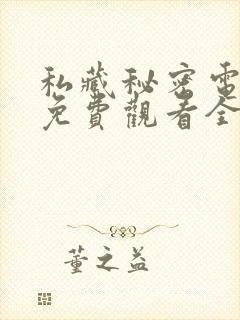 私藏秘密電
免費觀看全
董之益